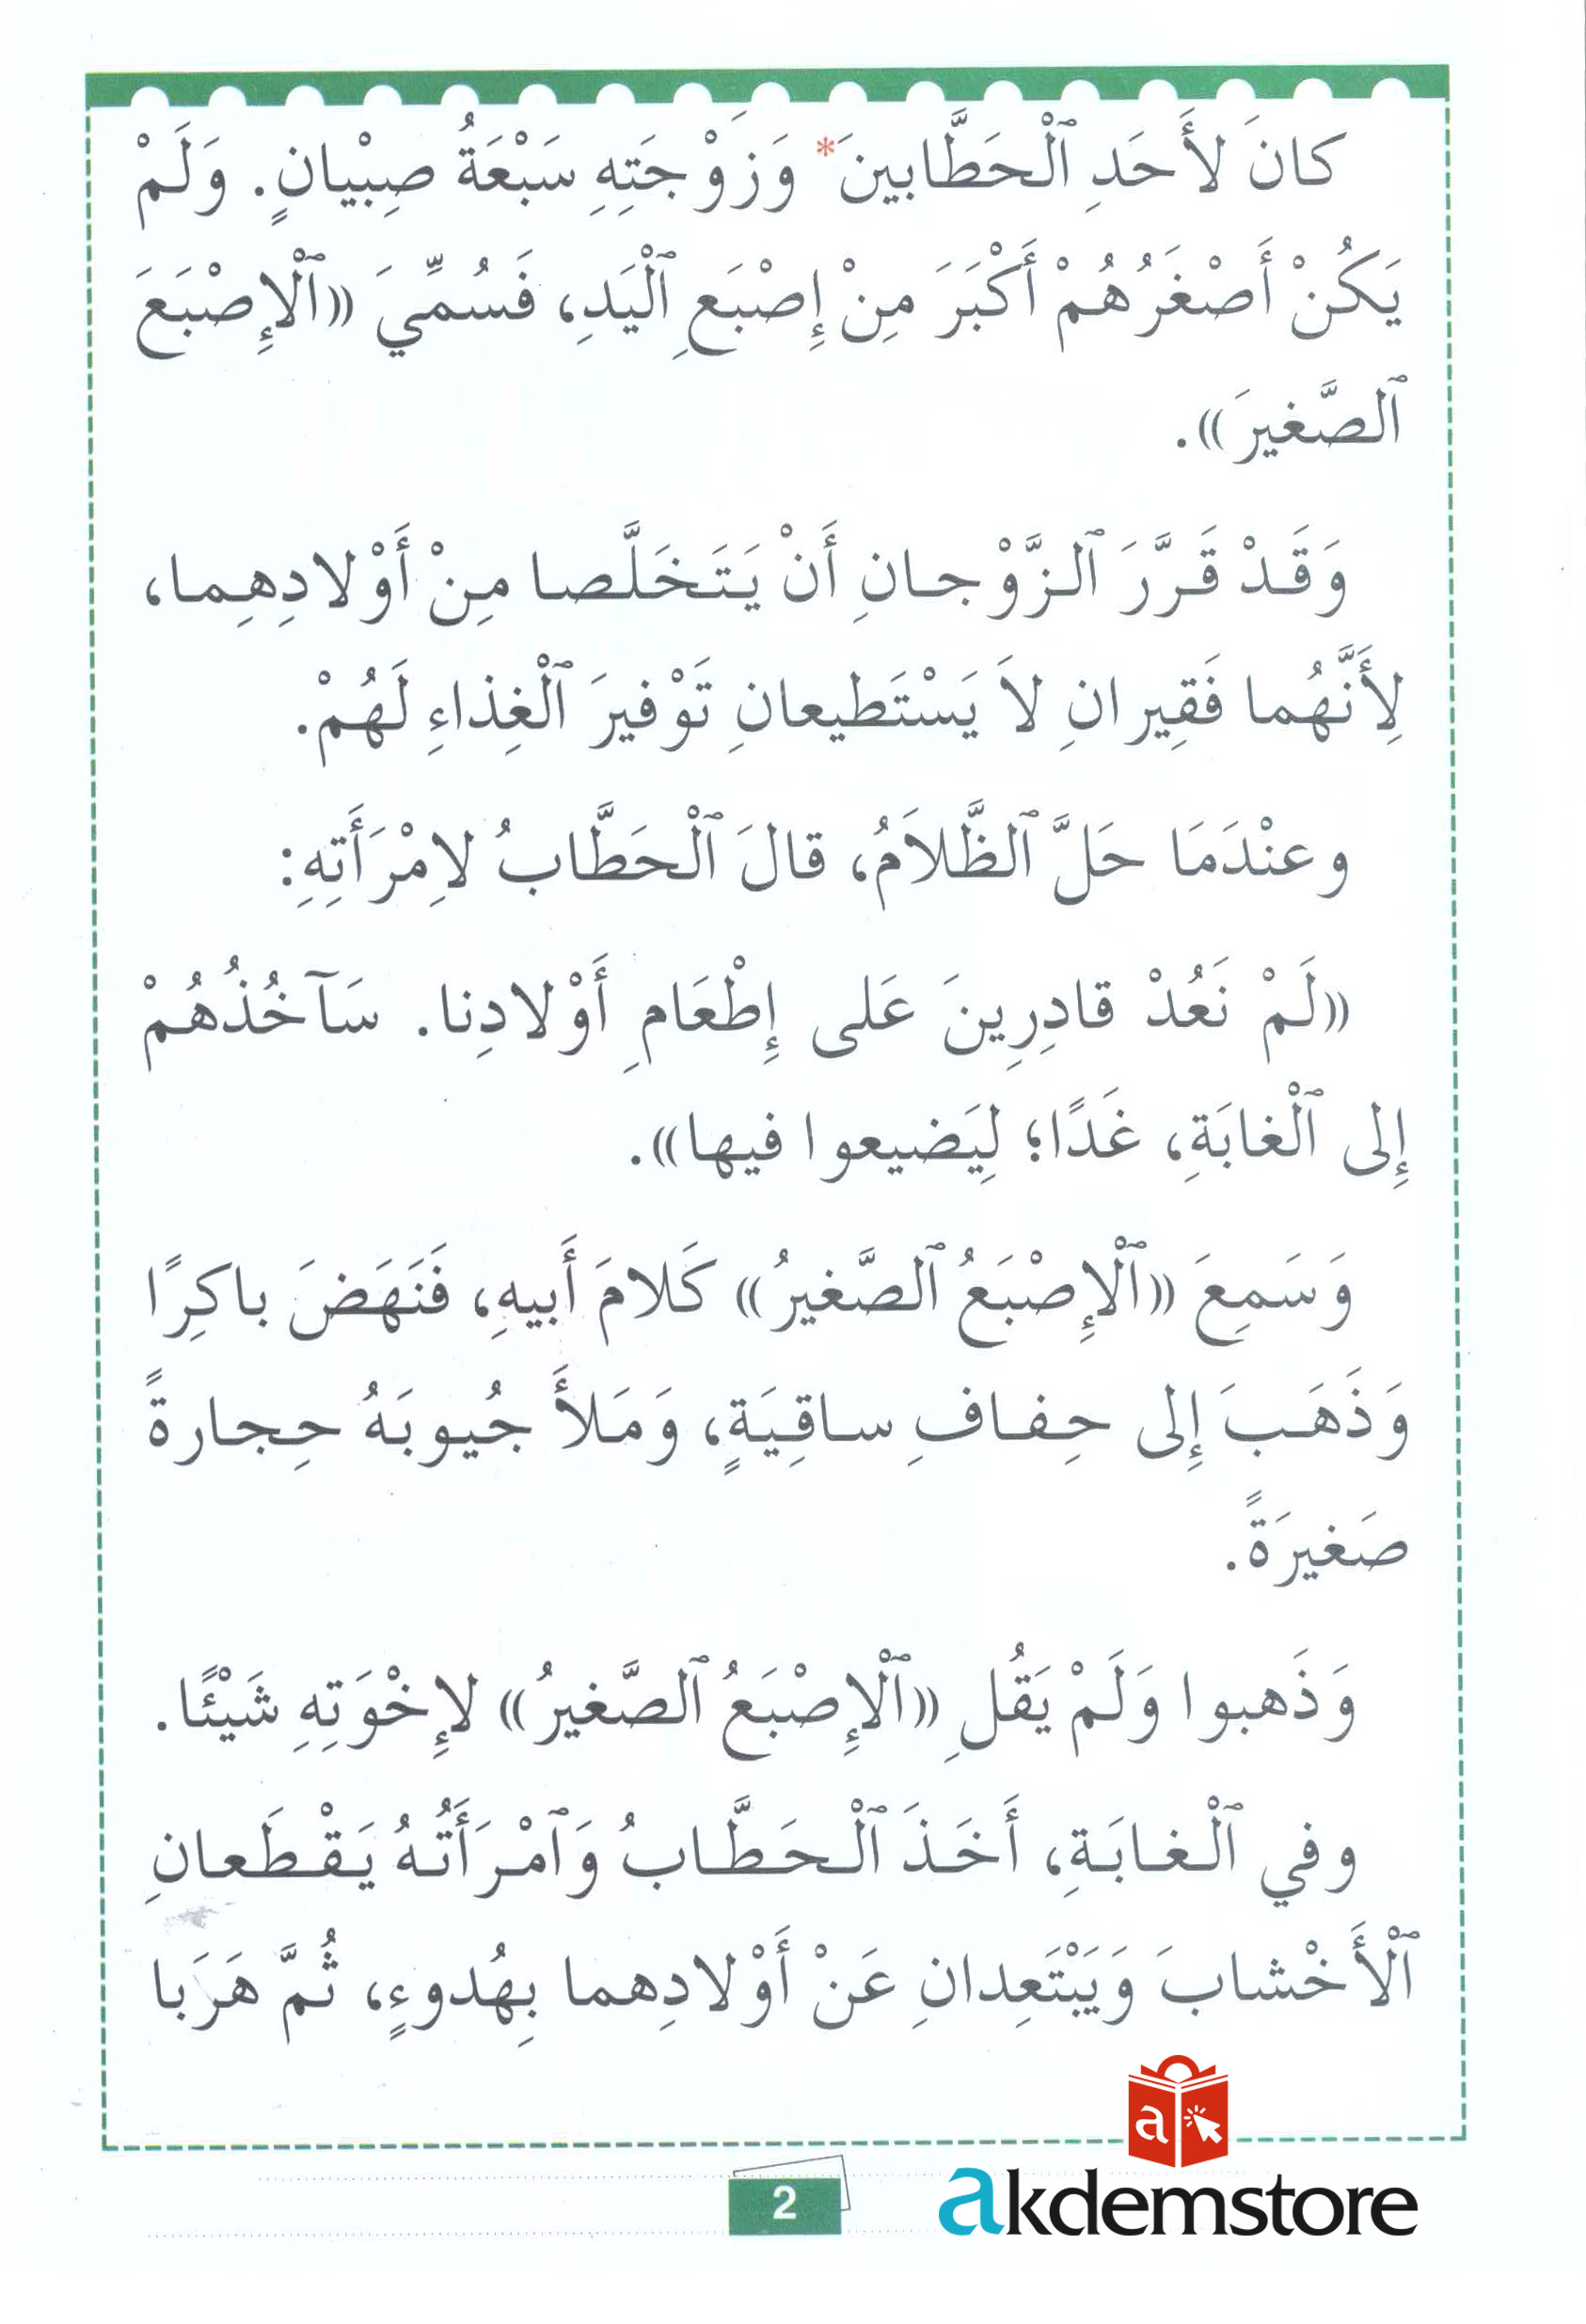 كانَ لأَحَدِ ٱلْحَطَّابينَ* وَزَوْجَتِهِ سَبْعَةُ صِبْيانٍ. وَلَمْ
يَكُنْ أَصْغَرُهُمْ أَكْبَرَ مِنْ إِصْبَعِ ٱلْيَدِ، فَسُمِّيَ «ٱلْإِصْبَعَ
ٱلصَّغيرَ».
وَقَدْ قَرَّرَ ٱلزَّوْجانِ أَنْ يَتَخَلَّصا مِنْ أَوْلادِهِما،
لِأَنَّهُما فَقِيرانِ لاَ يَسْتَطيعانِ تَوْفيرَ ٱلْغِذاءِ لَهُمْ.
وعنْدَمَا حَلَّ ٱلظَّلاَمُ، قالَ ٱلْحَطَّابُ لاِمْرَأَتِهِ:
«لَمْ نَعُدْ قادِرِينَ عَلى إِطْعَامِ أَوْلادِنا. سَآخُذُهُمْ
إِلى ٱلْغابَةِ، غَدًا؛ لِيَضيعوا فيها».
وَسَمِعَ «ٱلْإِصْبَعُ ٱلصَّغيرُ» كَلامَ أَبيهِ، فَنَهَضَ باكِرًا
وَذَهَبَ إِلى حِفافِ ساقِيَةٍ، وَمَلأَ جُيوبَهُ حِجارةً
صَغيرَةً.
وَذَهبوا وَلَمْ يَقُلِ «ٱلْإِصْبَعُ ٱلصَّغيرُ» لإِخْوَتِهِ شَيْئًا.
وفي ٱلْغابَةِ، أَخَذَ ٱلْحَطَّابُ وَٱمْرَأَتُهُ يَقْطَعانِ
ٱلْأَخْشابَ وَيَبْتَعِدانِ عَنْ أَوْلادِهما بِهُدوءٍ، ثُمَّ هَرَبا
a
2
akdemstore